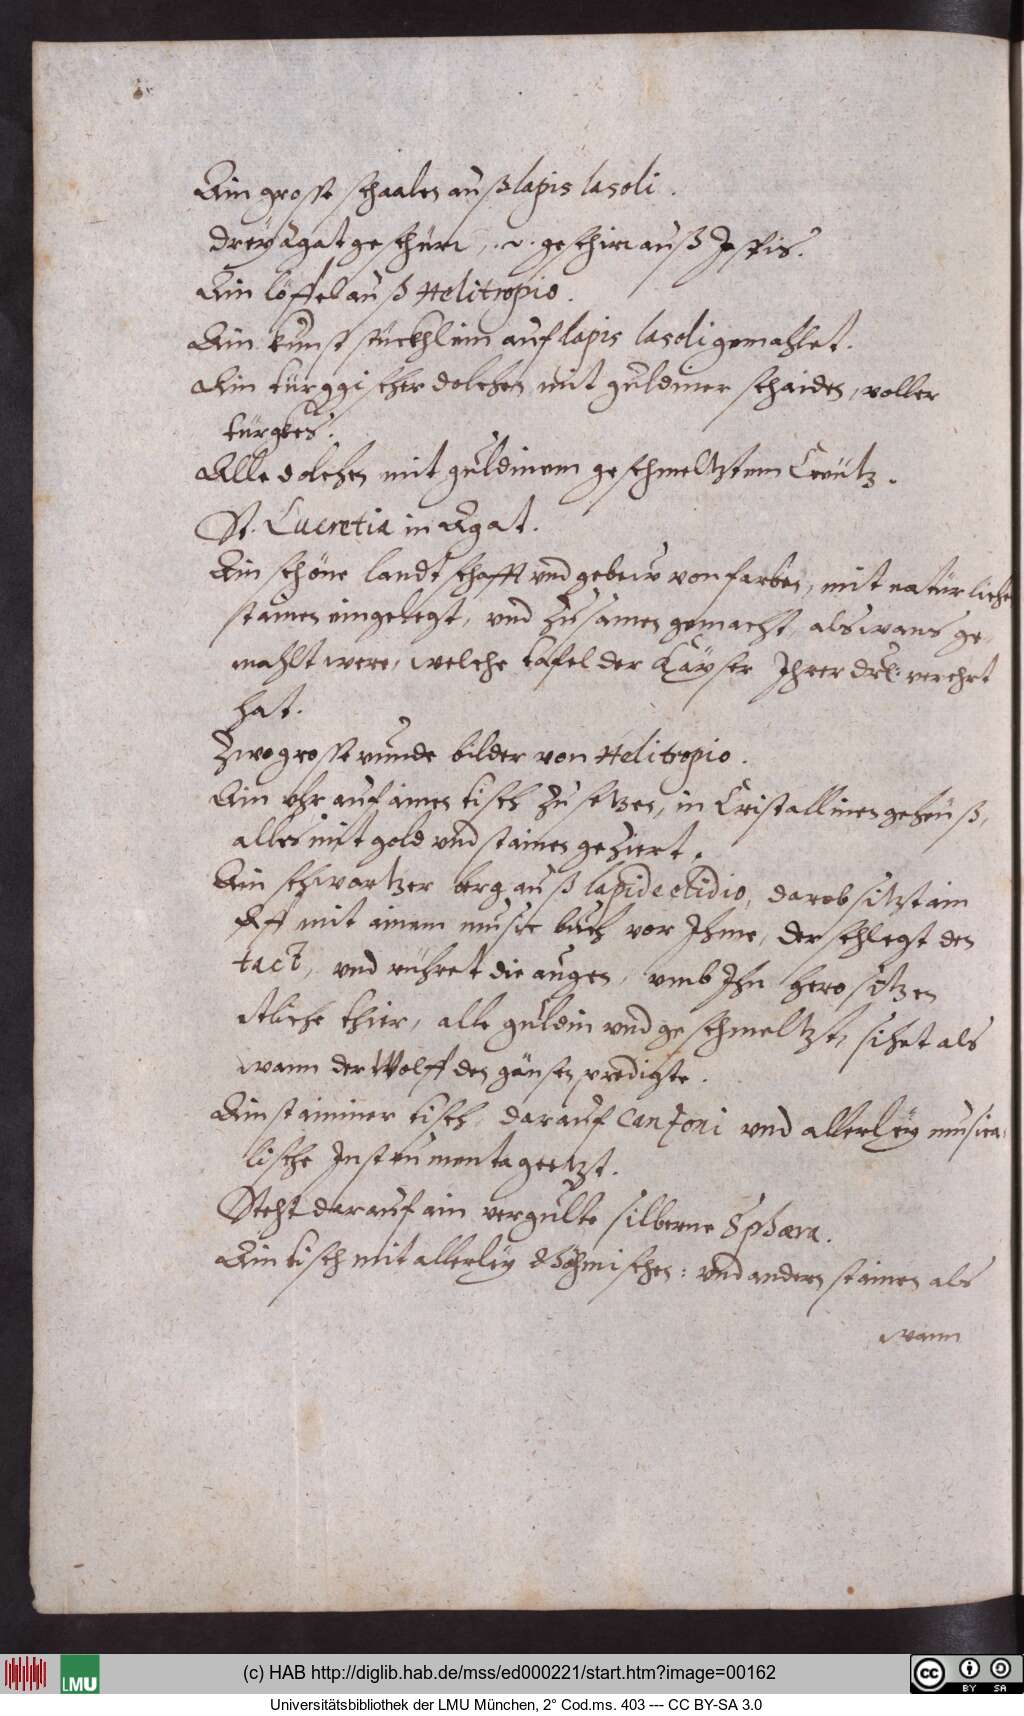 Ain grosse schaalen auß lapis lasoli.
Drey agat geschürr, .2. geschirr auß Jaspis.
Ain löffel auß Helitropio.
Ain kunst stückhlein auf lapis lasoli gemahlet.
Ain türggischer dolchen mit guldiner schaiden, voller
türgkes.
Alle dolchen mit guldinem geschmeltztem Creütz.
St. Lucretia in Agat.
Ain schöne landtschafft vnd gebeiw von farben, mit natürlichen
stainen eingelegt, vnd zusamen gemacht, als wans ge-
mahlt were, welche tafel der Kayser Ihrer drl: verehrt
hat.
Zwo grosse runde bilder von Helitropio.
Ain vhr auf ainen tisch zu setzen, in Cristallinen geheüß,
alles mit gold vnd stainen geziert.
Ain schwartzer berg auß lapide etidio, darob sitzt ain
Aff mit ainem music buch vor Ihme, der schlegt den
tact, vnd rühret die augen, vmb Ihn hero sitzen
etliche thier, alle guldin vnd geschmeltzt, sihet als
wann der Wolff den gänsen predigte.
Ain staininer tisch, darauf Canzoni vnd allerley musica-
lische Instrumenta geetzt.
Steht darauf ain vergulte silberne Sphæra.
Ain tisch mit allerley Böhmischen: vnd andern stainen als
wann
(c) HAB http://diglib.hab.de/mss/ed000221/start.htm?image=00162
LMU
cc BY SA
Universitätsbibliothek der LMU München, 2° Cod.ms. 403 --- CC BY-SA 3.0